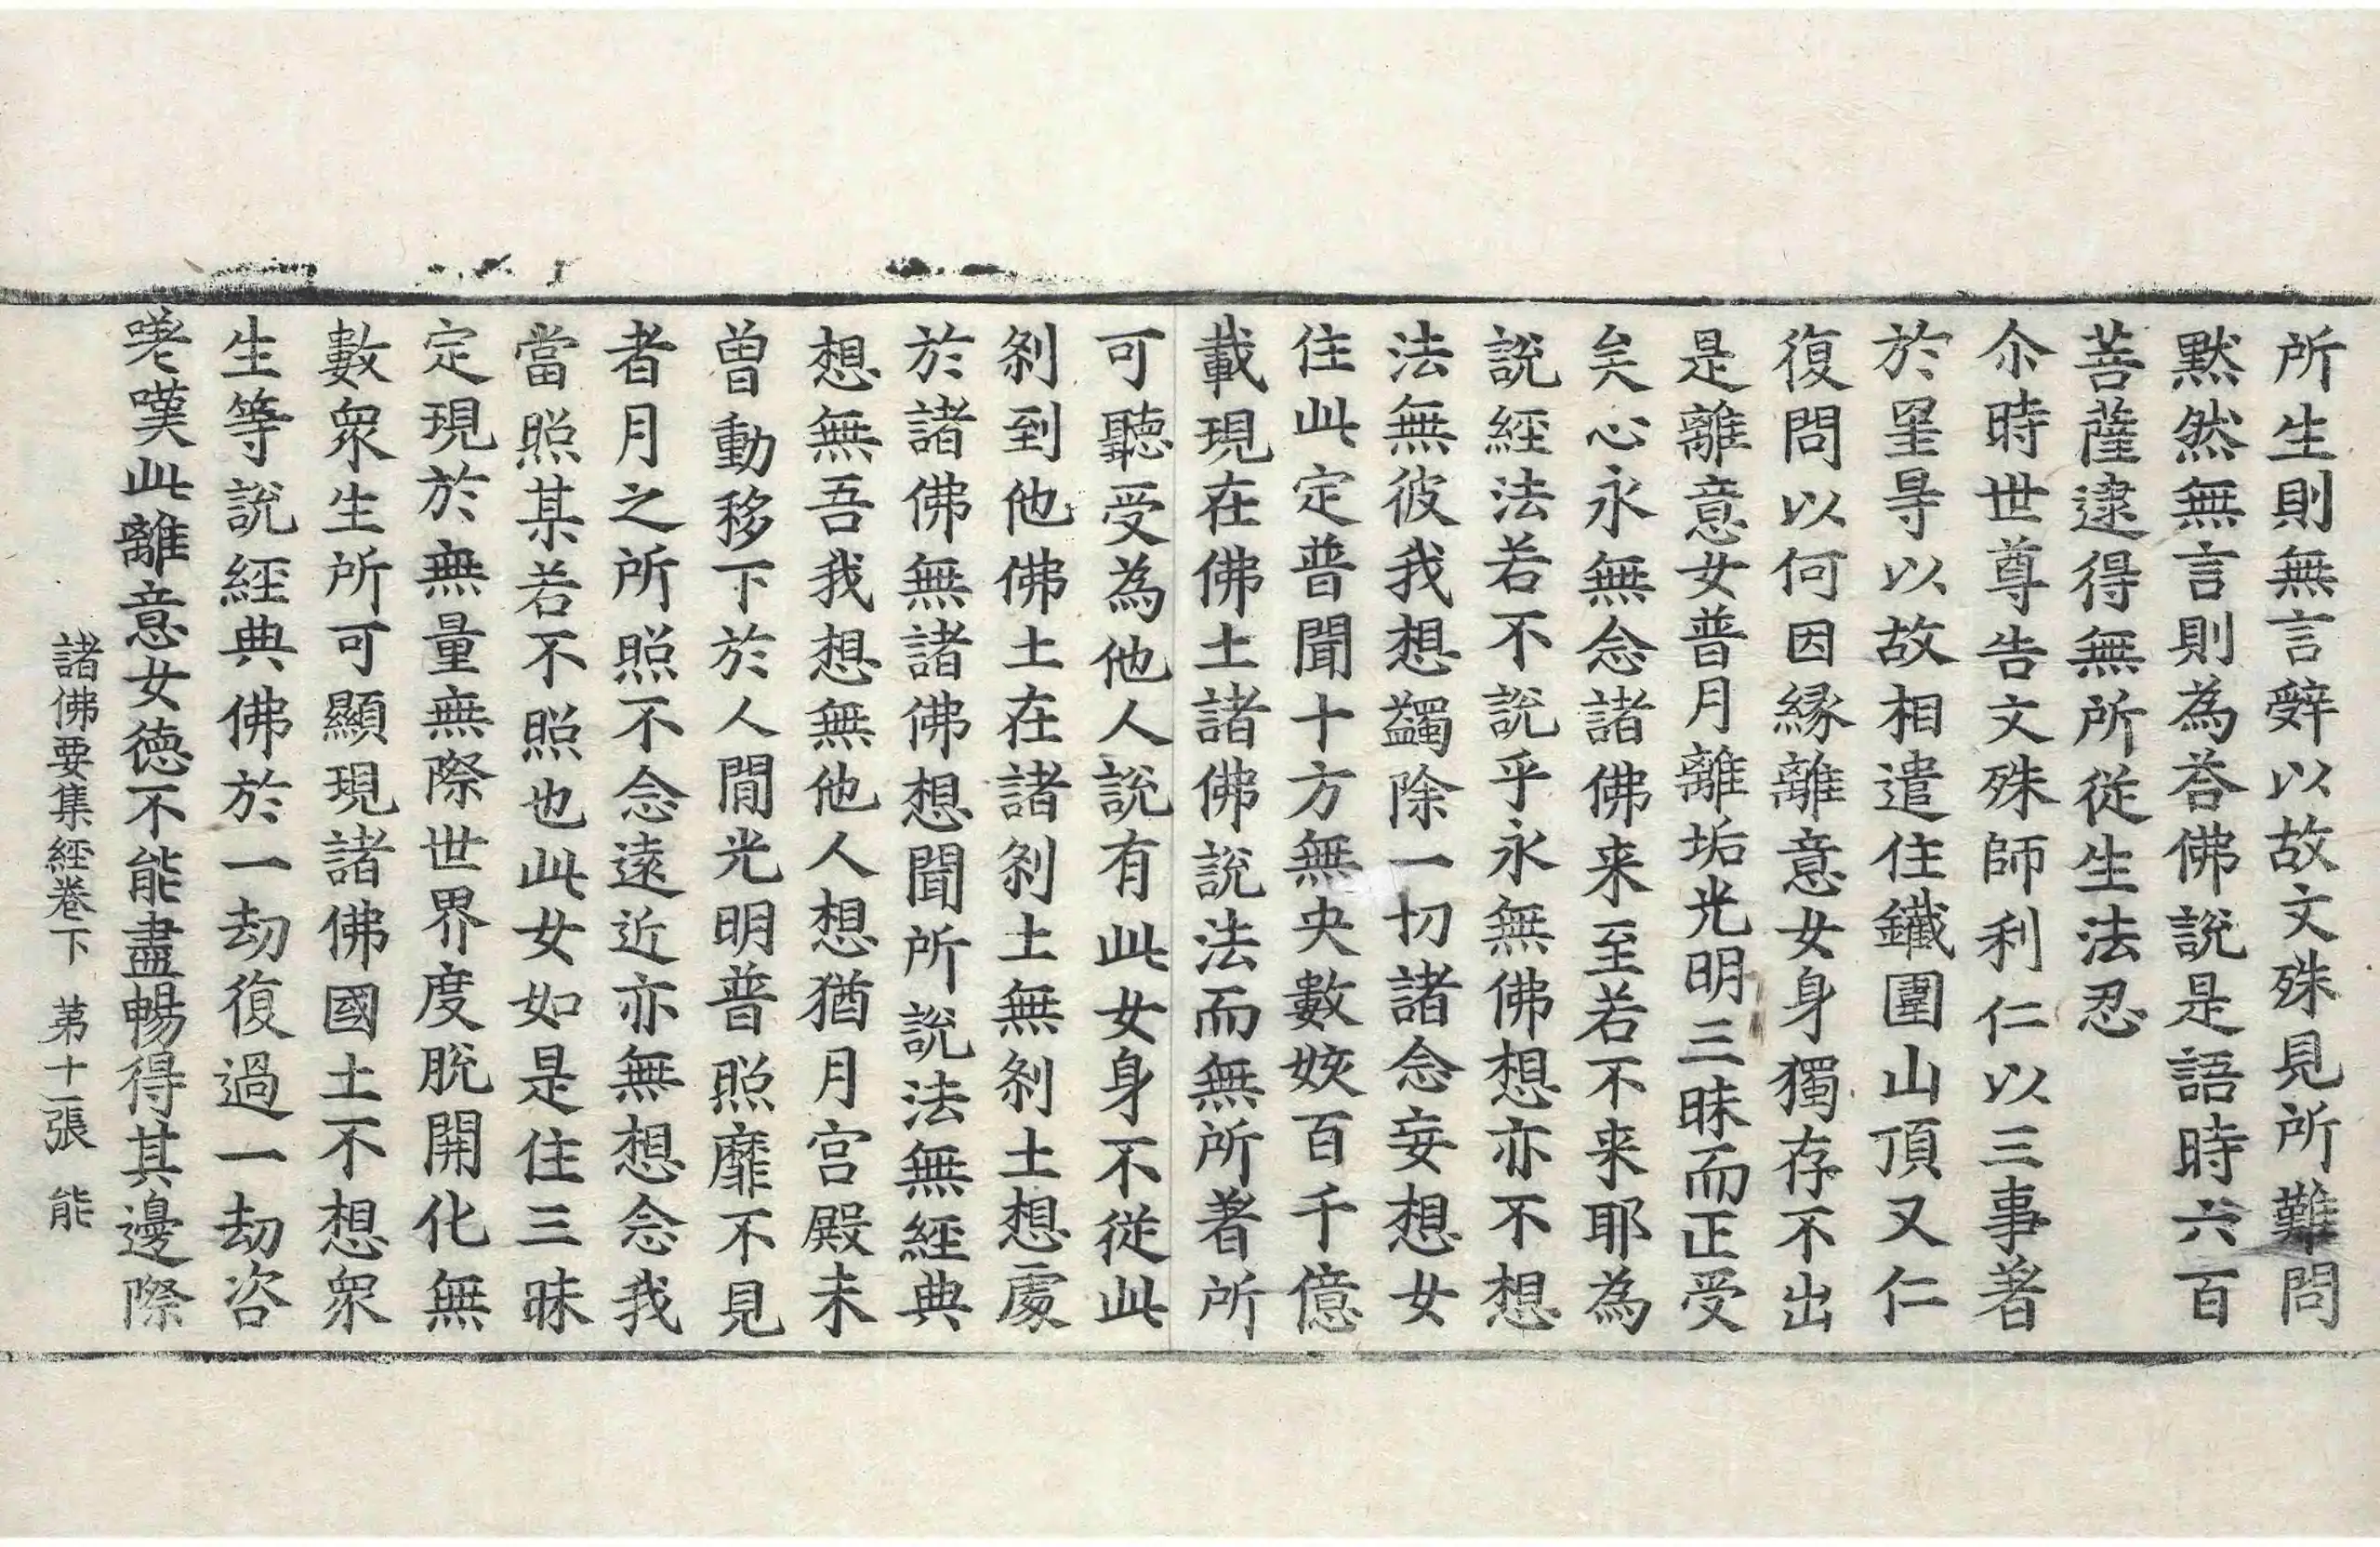 所生則無言辤以故文殊見所難問
默然無言則為荅佛說是語時六百
菩薩逮得無所從生法忍
尒時世尊告文殊師利仁以三事著
於罣㝵以故相遣住鐵圍山頂又仁
復問以何因緣離意女身獨存不出
是離意女普月離垢光明三昧而正受
矣心永無念諸佛来至若不来耶為
說經法若不說乎永無佛想亦不想
法無彼我想蠲除一切諸念妄想女
住此定普聞十方無央數姟百千億
載現在佛土諸佛說法而無所著所
可聽受為他人說有此女身不從此
剎到他佛土在諸剎土無剎土想處
於諸佛無諸佛想聞所說法無經典
想無吾我想無他人想猶月宮殿未
曾動移下於人間光明普照靡不見
者月之所照不念遠近亦無想念我
當照某若不照也此女如是住三昧
定現於無量無際世界度脫開化無
數衆生所可顯現諸佛國土不想衆
生等說經典佛於一劫復過一劫咨
嗟嘆此離意女德不能盡暢得其邊際
諸佛要集經卷下 第十一張 能